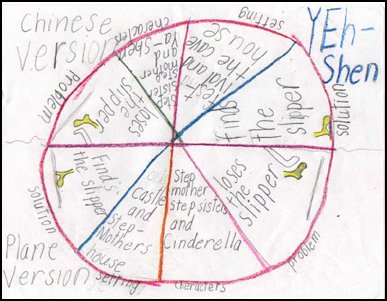 Chinese
Version
YEh-
Shen
characters
Step
sister
step mother
and
Ya-Shen
setting
house
and
the cave
solution
Find
the slipper
Problem
loses
the
slipper
solution
Finds
the slipper
Castle
and
step-
Mothers
house
setting
Step
mother
step sisters
and
Cinderella
characters
loses
the
slipper
problem
Plane
Version